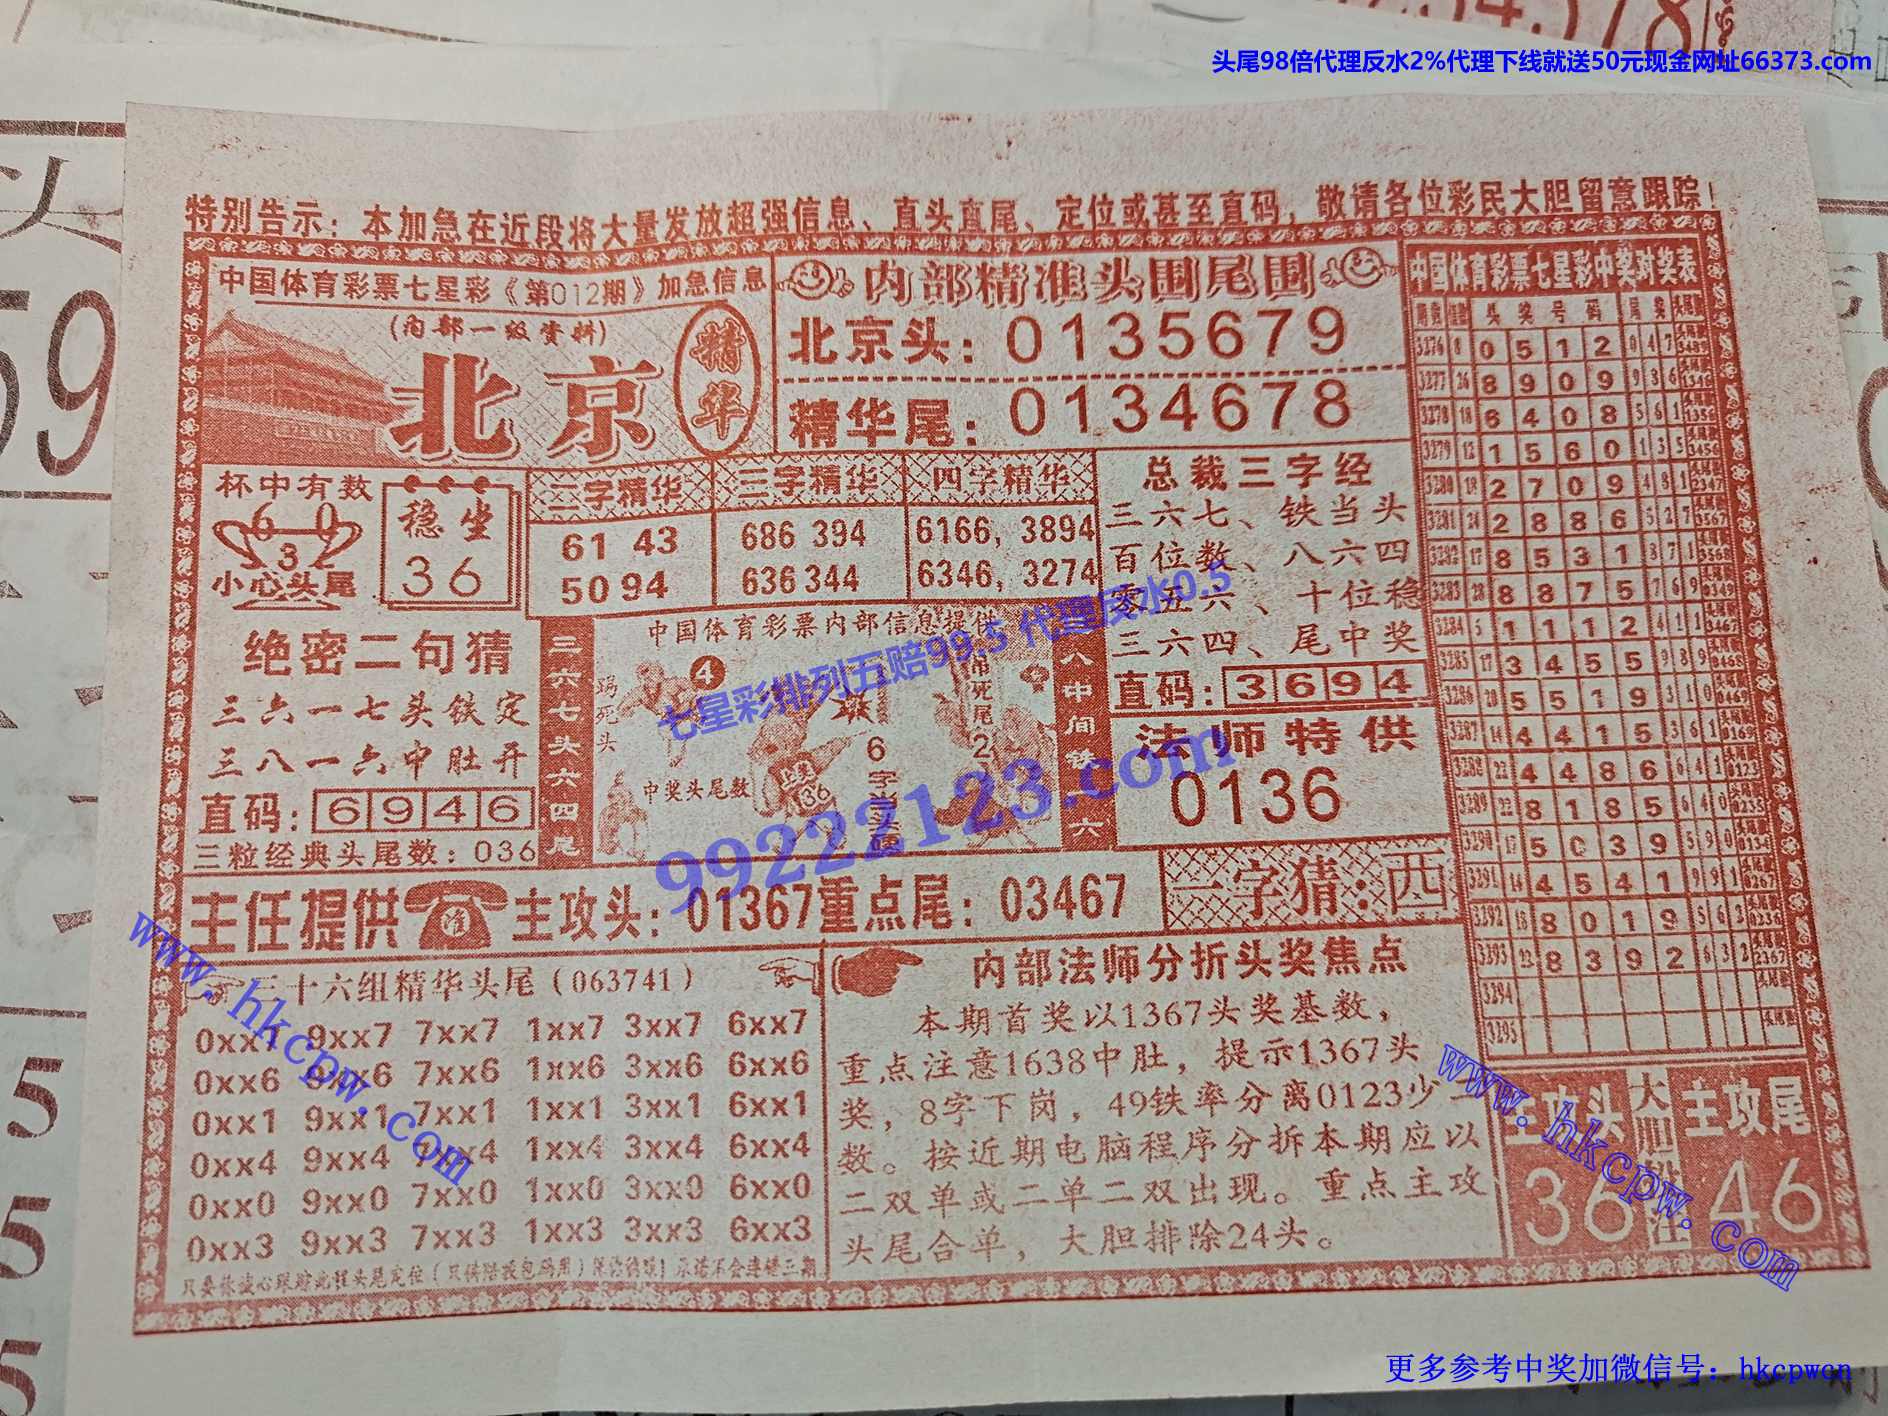 头尾98倍代理反水2%代理下线就送50元现金网址66373.com
特别告示：本加急在近段将大量发放超强信息、直头直尾、定位或甚至直码，敬请各位彩民大胆留意跟踪！
中国体育彩票七星彩《第012期》加急信息
(内部一级资料)
北京
精华
内部精准头围尾围
北京头：0135679
精华尾：0134678
杯中有数
6 0
3
小心头尾
稳坐
36
二字精华
61 43
50 94
三字精华
686 394
636 344
四字精华
6166, 3894
6346, 3274
总裁三字经
三六七、铁当头
百位数、八六四
零五六、十位稳
三六四、尾中奖
直码：3694
绝密二句猜
三六一七头铁定
三八一六中肚开
直码：6946
三粒经典头尾数：036
三六七头六四尾
中国体育彩票内部信息提供
4
踢死头
中奖头尾数
36
6字当头硬
吊死尾2
七星彩排列五赔99.5 代理反水0.5
99222123.com
法师特供
0136
主任提供
准
主攻头：01367重点尾：03467
一字猜：西
三十六组精华头尾（063741）
0xx7 9xx7 7xx7 1xx7 3xx7 6xx7
0xx6 9xx6 7xx6 1xx6 3xx6 6xx6
0xx1 9xx1 7xx1 1xx1 3xx1 6xx1
0xx4 9xx4 7xx4 1xx4 3xx4 6xx4
0xx0 9xx0 7xx0 1xx0 3xx0 6xx0
0xx3 9xx3 7xx3 1xx3 3xx3 6xx3
内部法师分折头奖焦点
本期首奖以1367头奖基数，
重点注意1638中肚，提示1367头
奖，8字下岗，49铁率分离0123少一
数。按近期电脑程序分拆本期应以
二双单或二单二双出现。重点主攻
头尾合单，大胆排除24头。
中国体育彩票七星彩中奖对奖表
头奖号码 尾奖
3276 8 0 5 1 2 0 4 7
3277 26 8 9 0 9 9 3 6
3278 18 6 4 0 8 5 6 1
3279 12 1 5 6 0 1 3 5
3280 18 2 7 0 9 4 8 1
3281 24 2 8 8 6 5 2 7
3282 17 8 5 3 1 8 7 1
3283 28 8 8 7 5 7 6 9
3284 5 1 1 1 2 4 1 1
3285 17 3 4 5 5 9 8 9
3286 20 5 5 1 9 3 1 0
3287 14 4 4 1 5 3 6 1
3288 22 4 4 8 6 6 4 1
3289 22 8 1 8 5 6 4 0
3290 17 5 0 3 9 5 9 0
3291 14 4 5 4 1 9 9 1
3292 18 8 0 1 9 5 6 2
3293 22 8 3 9 2 6 3 2
3294
3295
主攻头
36
主攻尾
46
www.hkcpw.com
www.hkcpw.com
更多参考中奖加微信号：hkcpwcn